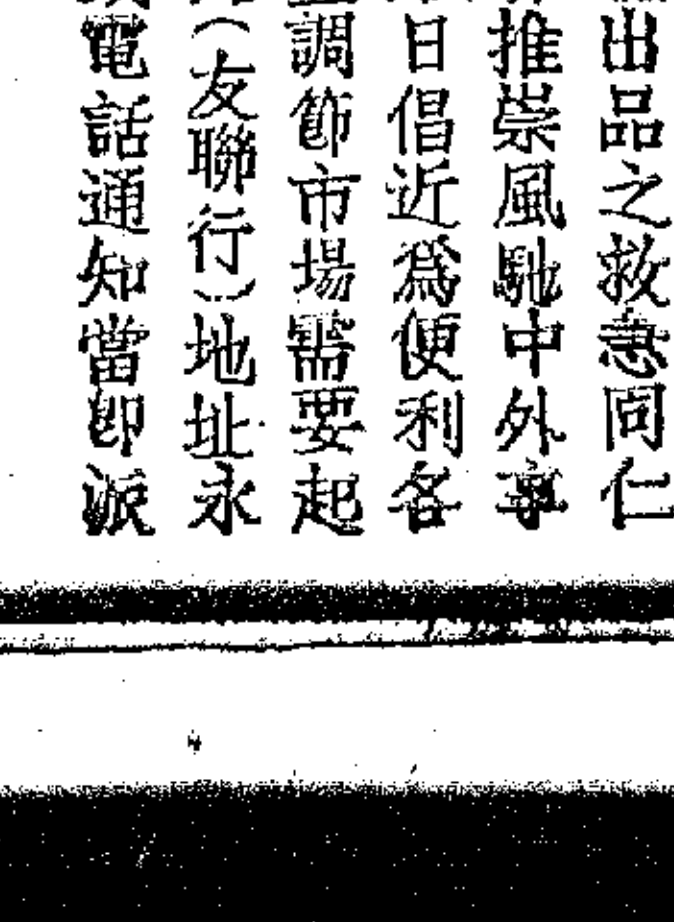 出品之救急同仁
推崇風馳中外享
日倡近為便利各
調節市場需要起
（友聯行）地址永
電話通知當即派